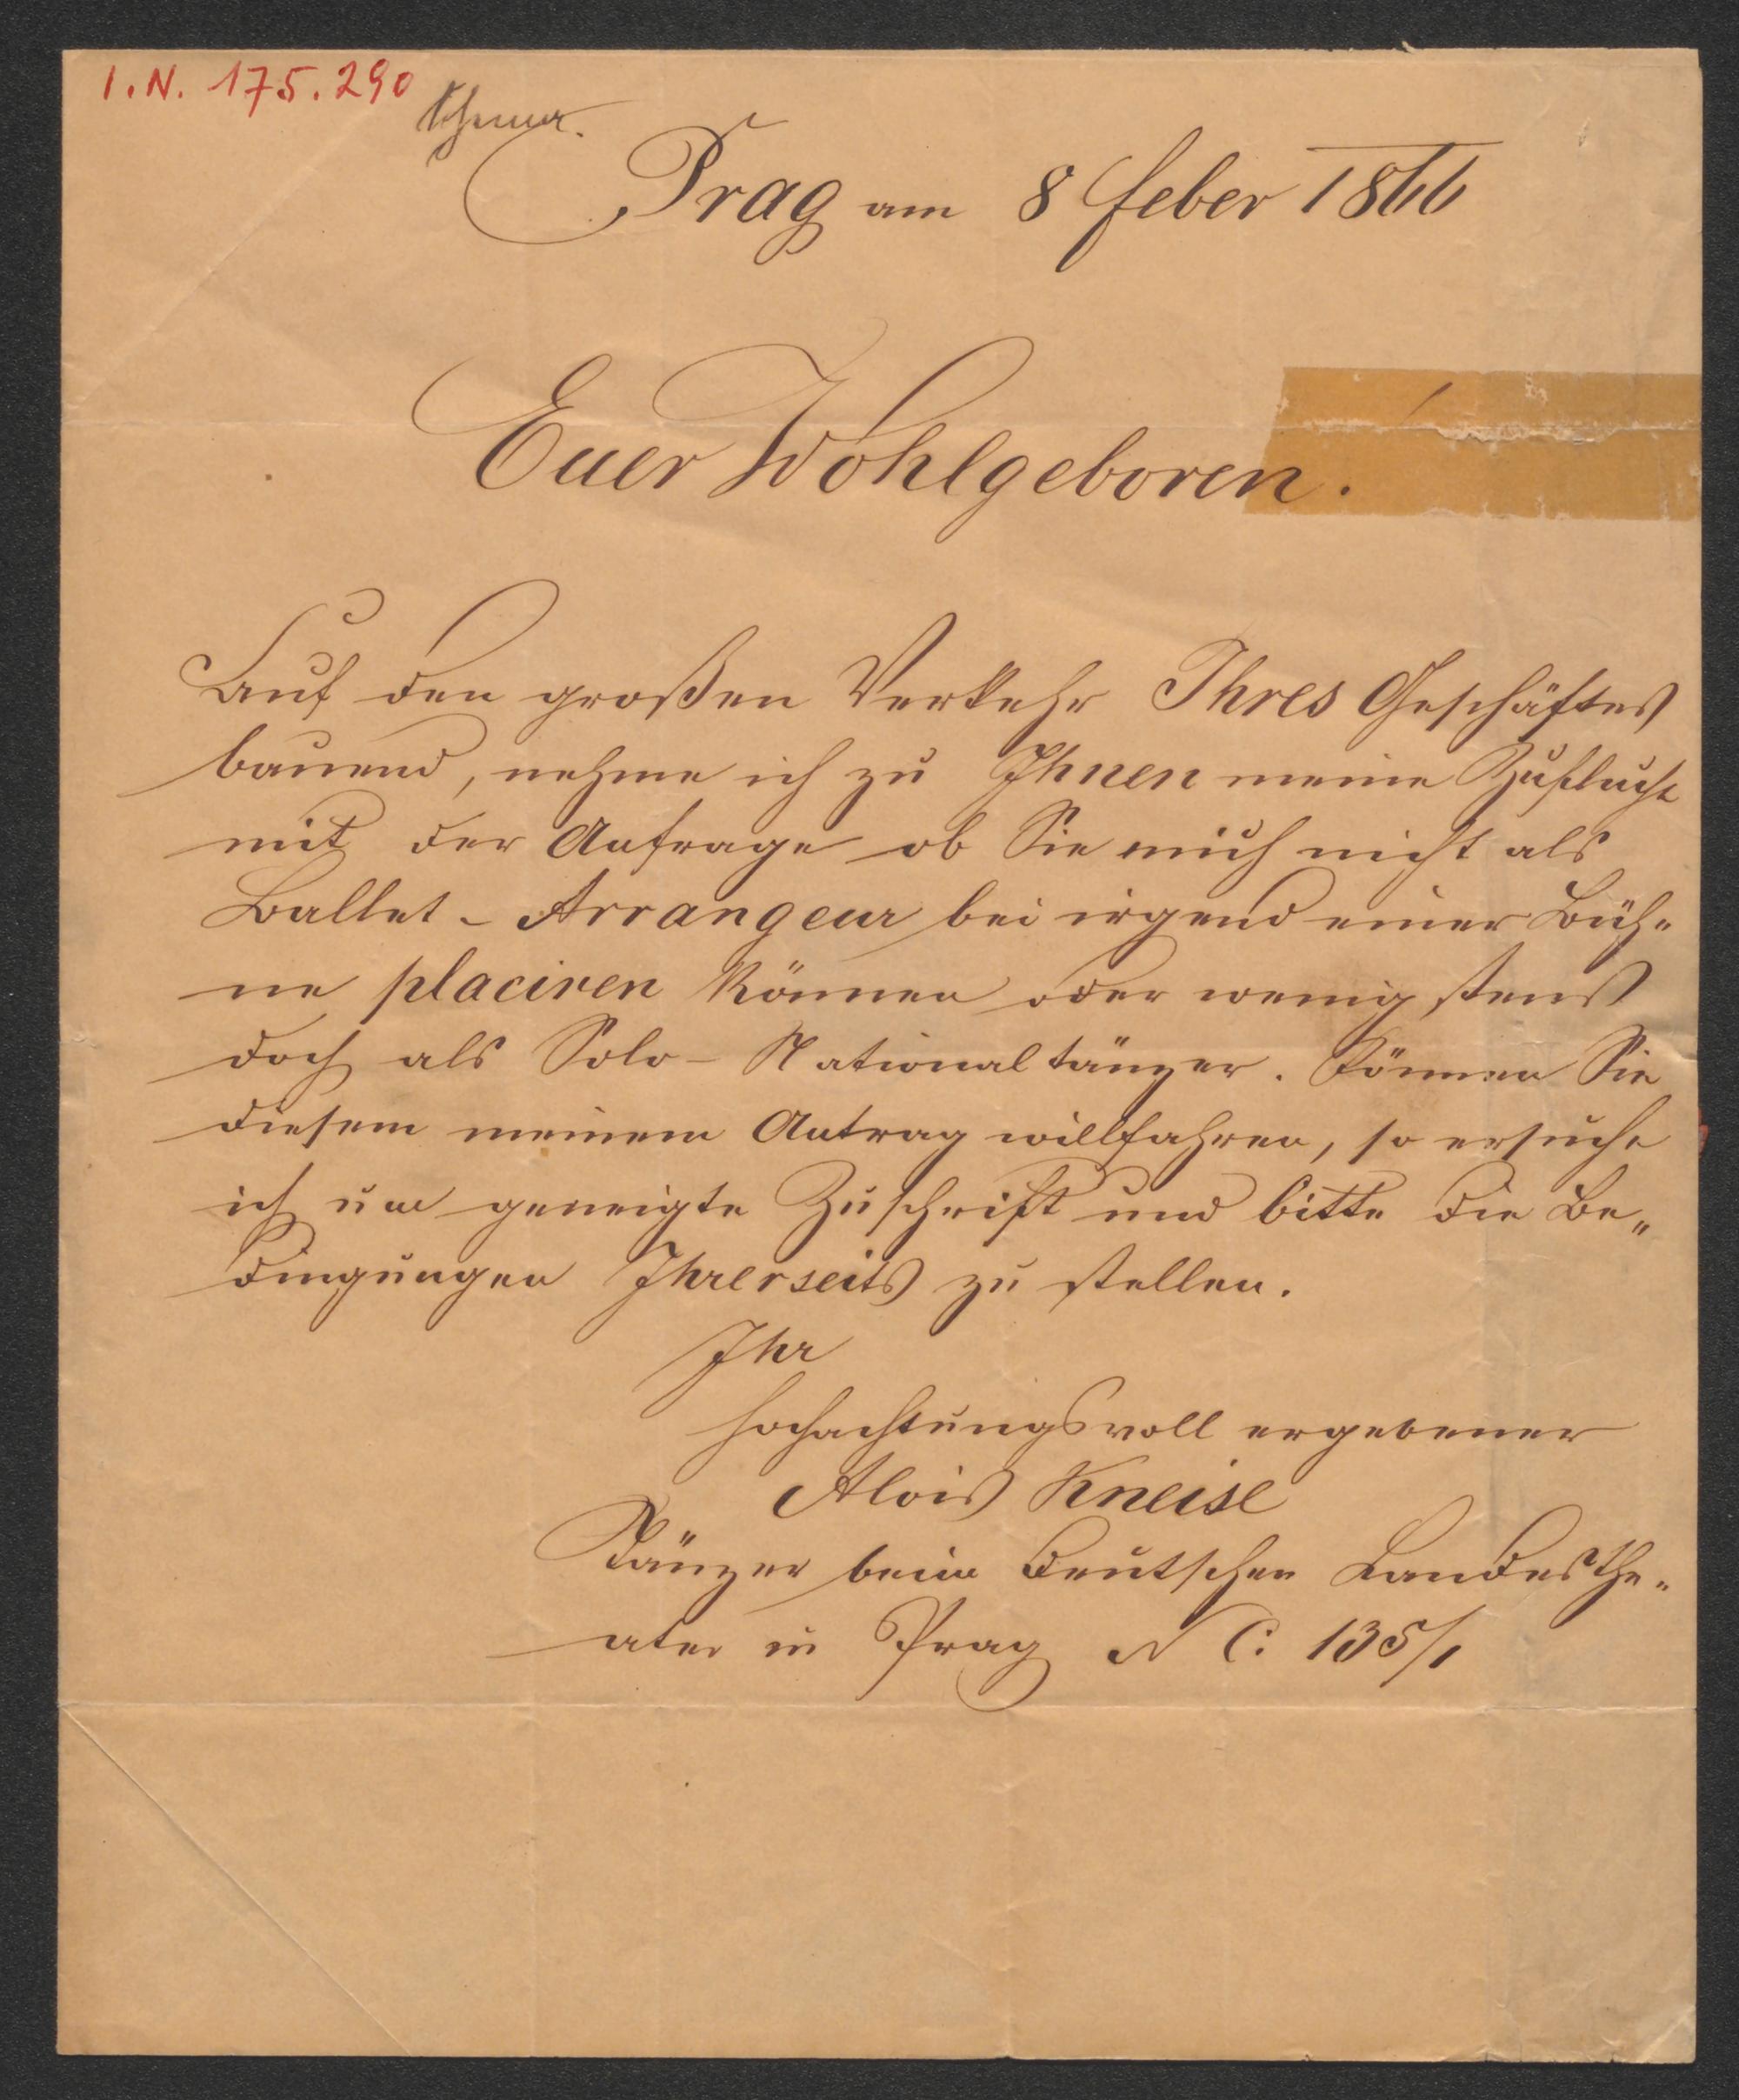 I.N. 175.290
Prag am 8 feber 1866
Euer Wohlgeboren.
Auf den großen Verkehr Ihres Geschäftes
bauend, nehme ich zu Ihnen meine Zuflucht
mit der Anfrage ob Sie mich nicht als
Ballet-Arrangeur bei irgend einer Büh=
ne placiren können oder wenigstens
doch als Solo-Nationaltänzer. Können Sie
diesem meinem Antrag willfahren, so ersuche
ich um geneigte Zuschrift und bitte die Be„
dingungen Ihrerseits zu stellen.
Ihr
hochachtungsvoll ergebener
Alois Kneise
Tänzer beim deutschen Landesthe=
ater in Prag N C: 135/1